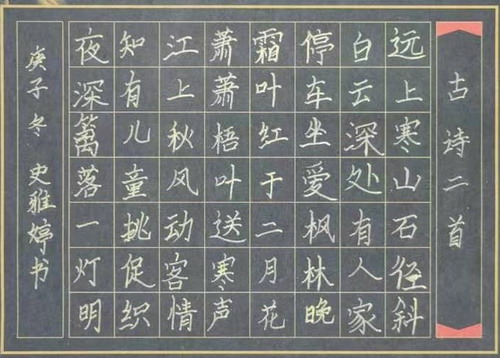 古诗二首
远上寒山石径斜
白云深处有人家
停车坐爱枫林晚
霜叶红于二月花
萧萧梧叶送寒声
江上秋风动客情
知有儿童挑促织
夜深篱落一灯明
庚子冬 史雅婷书